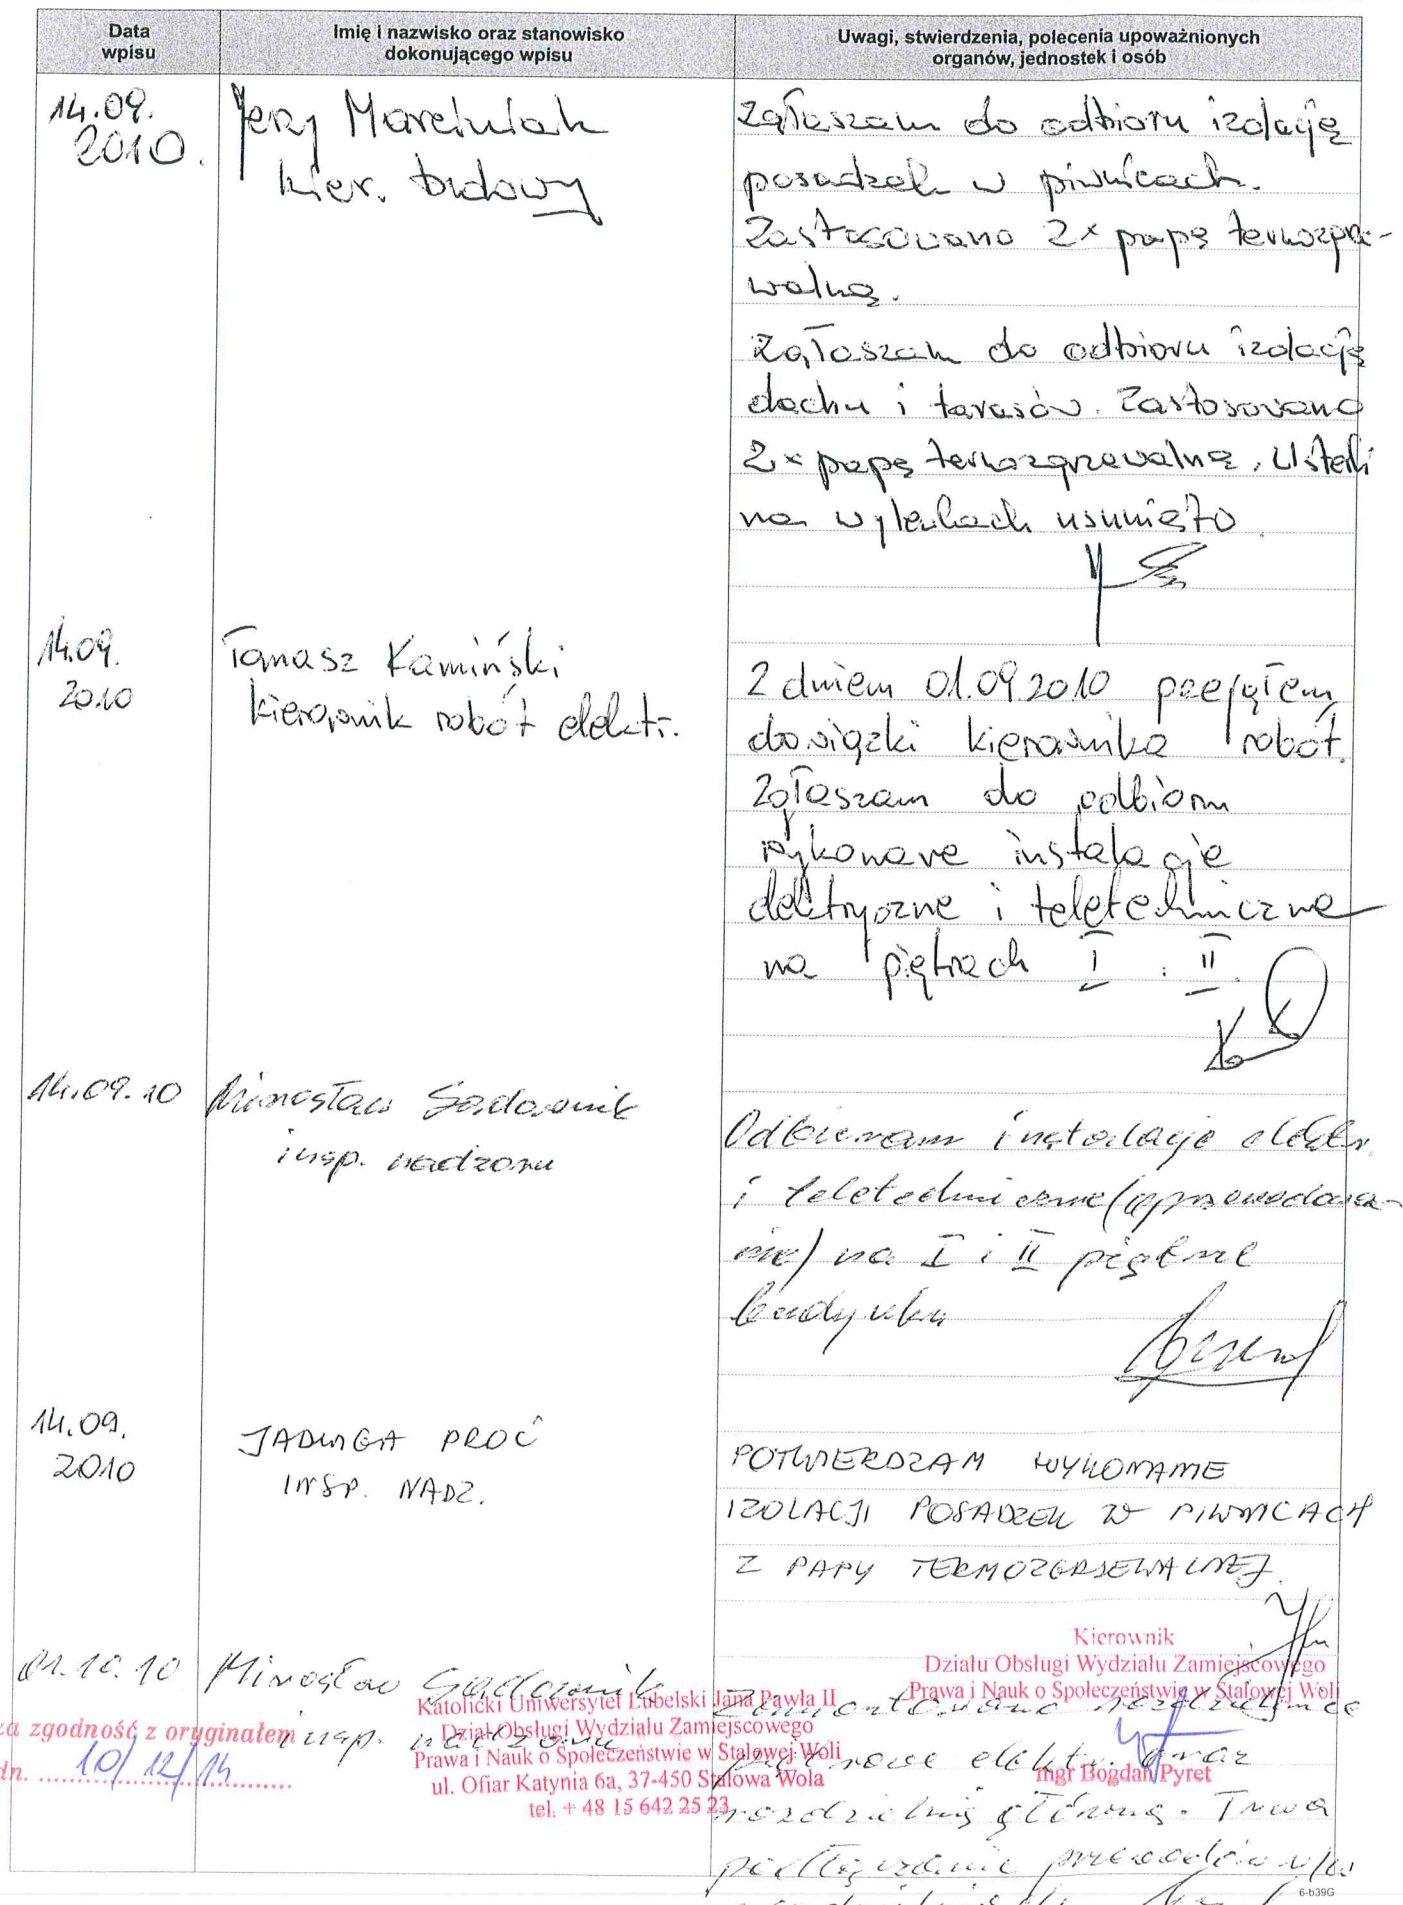 Data
wpisu
Imię i nazwisko oraz stanowisko
dokonującego wpisu
Uwagi, stwierdzenia, polecenia upoważnionych
organów, jednostek i osób
14.09.
2010.
Jerzy Marciniak
kier. budowy
Zgłaszam do odbioru izolację
posadzek w piwnicach.
Zastosowano 2x papę termozgrze-
walną.
Zgłaszam do odbioru izolację
dachu i tarasów. Zastosowano
2x papę termozgrzewalną. Usterki
na wylewkach usunięto.
14.09.
2010
Tomasz Kamiński
kierownik robót elektr.
Z dniem 01.09.2010 przejąłem
obowiązki kierownika robót.
Zgłaszam do odbioru
wykonane instalacje
elektryczne i teletechniczne
na piętrach I i II.
14.09.10
Mirosław Sadownik
insp. nadzoru
Odbieram instalacje elektr.
i teletechniczne (oprzewodowa-
nie) na I i II piętrze
budynku
14.09.
2010
JADWIGA PROĆ
INSP. NADZ.
POTWIERDZAM WYKONANIE
IZOLACJI POSADZEK W PIWNICACH
Z PAPY TERMOZGRZEWALNEJ.
01.10.10
Mirosław Sadownik
insp. nadzoru
Zamontowano rozdzielnice
piętrowe elektr. oraz
rozdzielnię główną. Trwa
podłączanie przewodów w/w
Kierownik
Działu Obsługi Wydziału Zamiejscowego
Prawa i Nauk o Społeczeństwie w Stalowej Woli
mgr Bogdan Pyret
Katolicki Uniwersytet Lubelski Jana Pawła II
Dział Obsługi Wydziału Zamiejscowego
Prawa i Nauk o Społeczeństwie w Stalowej Woli
ul. Ofiar Katynia 6a, 37-450 Stalowa Wola
tel. + 48 15 642 25 23
za zgodność z oryginałem
dn. 10/12/14
6-b39G